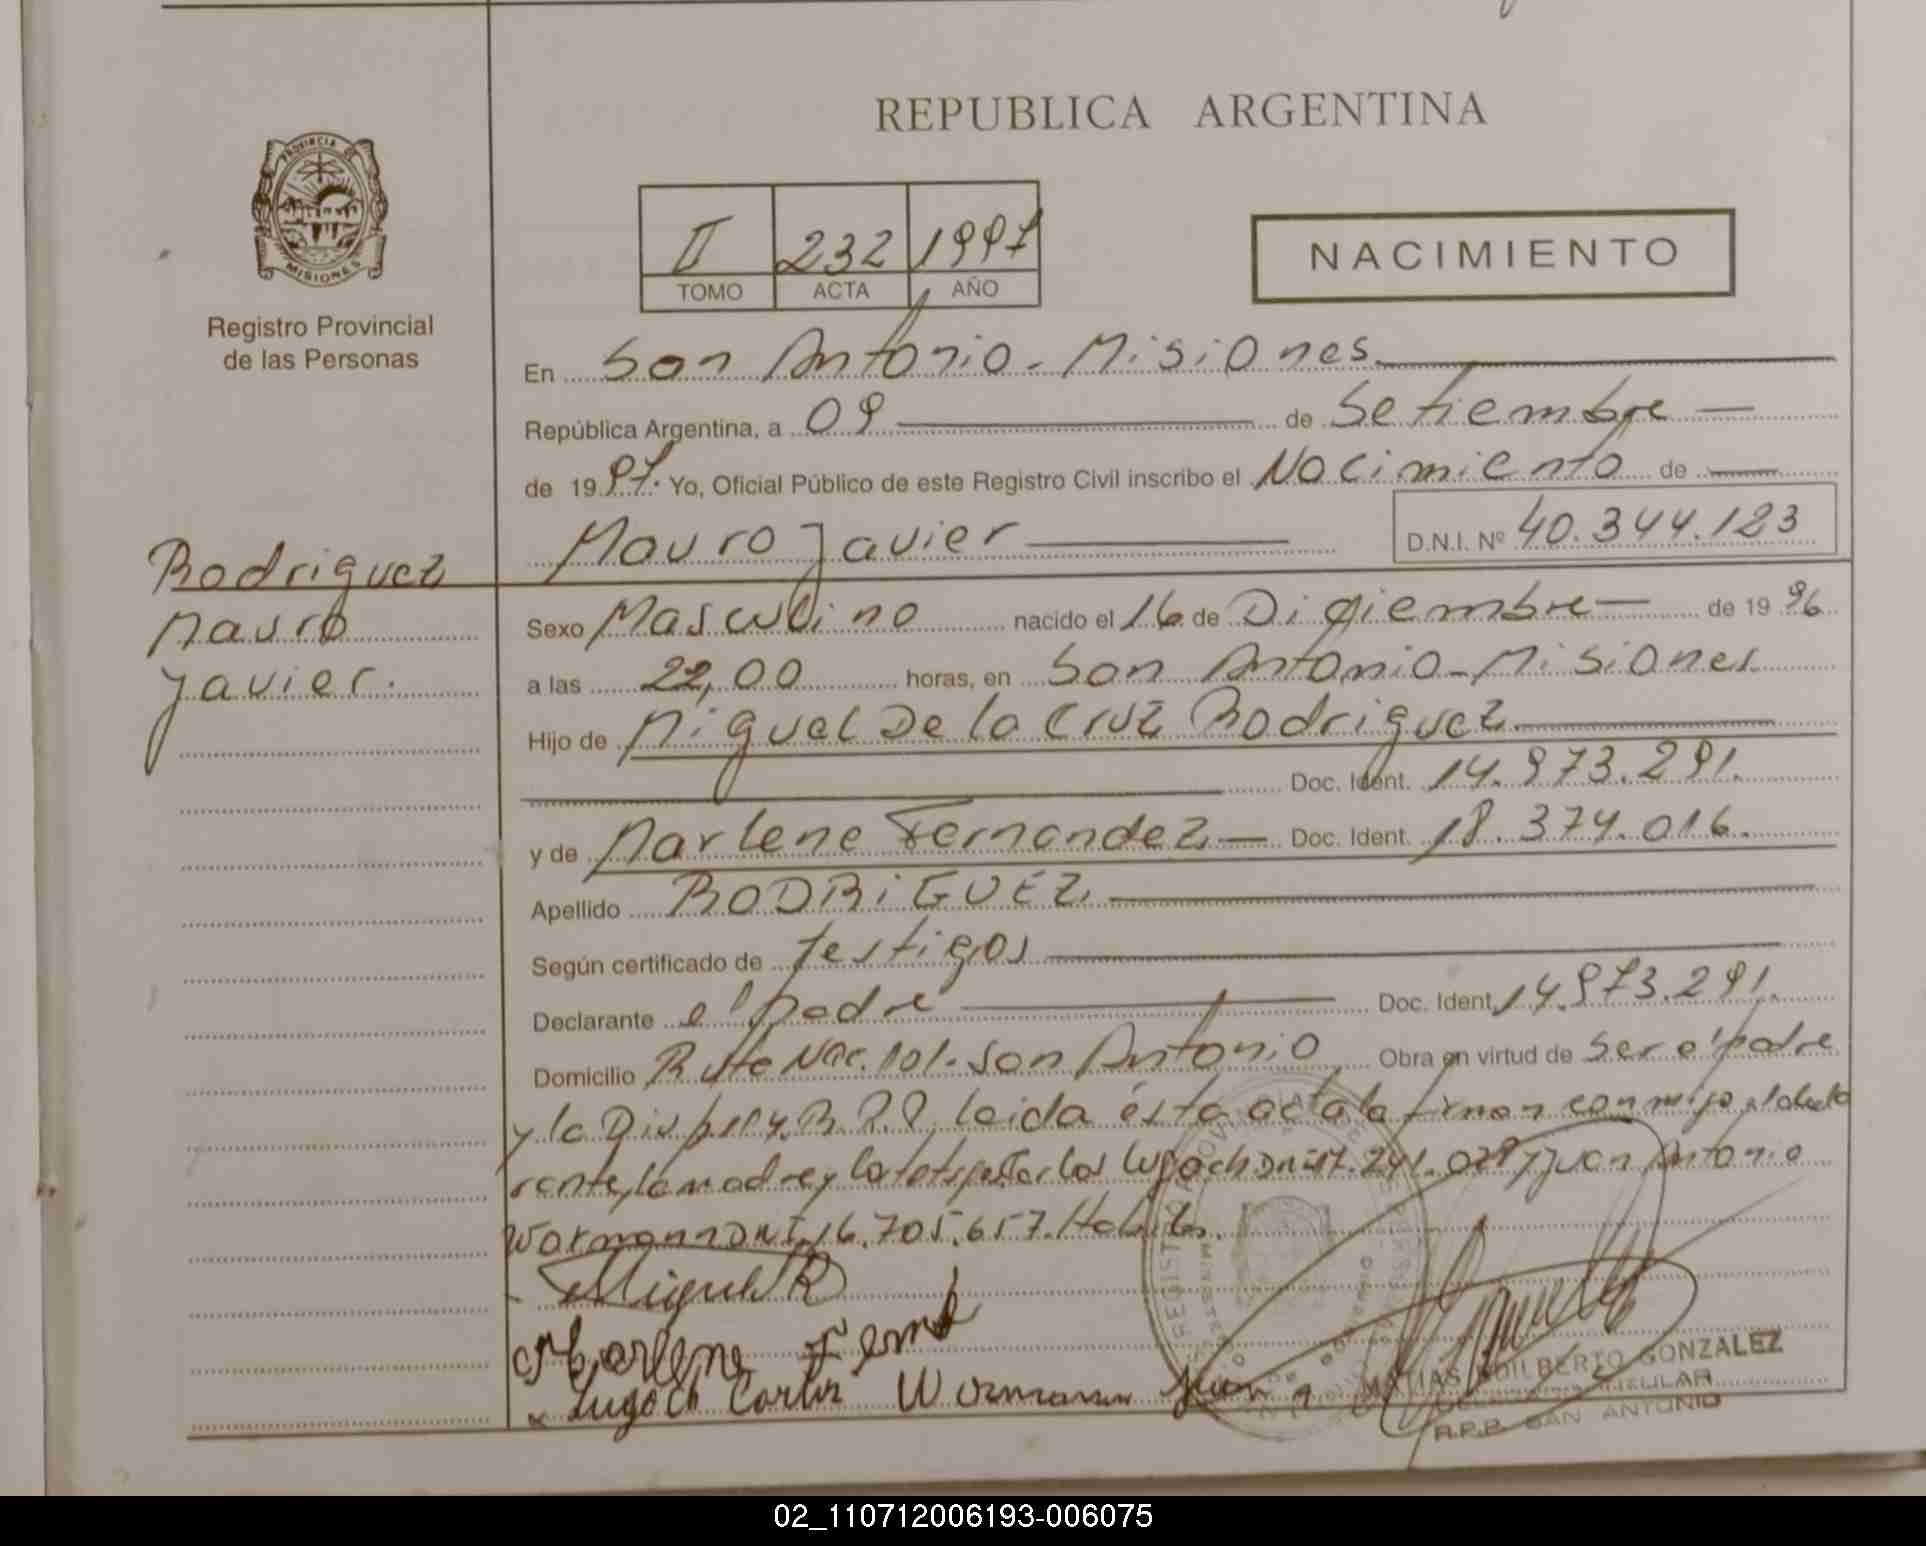 REPUBLICA ARGENTINA
PROVINCIA DE
MISIONES
Registro Provincial
de las Personas
II 232 1997
TOMO ACTA AÑO
NACIMIENTO
En San Antonio - Misiones.
República Argentina, a 09 de Setiembre
de 1997. Yo, Oficial Público de este Registro Civil inscribo el Nacimiento de
Mauro Javier D.N.I. Nº 40.344.123
Rodriguez
Mauro
Javier.
Sexo Masculino nacido el 16 de Diciembre de 1996
a las 22,00 horas, en San Antonio - Misiones
Hijo de Miguel De la Cruz Rodriguez
Doc. Ident. 14.973.291.
y de Marlene Fernandez Doc. Ident. 18.374.016.
Apellido RODRIGUEZ
Según certificado de testigos
Declarante el padre Doc. Ident. 14.973.291.
Domicilio Ruta Nac. 101 - San Antonio Obra en virtud de ser el padre
y la leida ésta acta la firman conmigo, el decla
rante, la madre y los Carlos Lugoch DNI y Juan Antonio
Wormann DNI 16.705.657. Habiles.
Miguel R
Marlene Fernd
Lugoch Carlos Wormann Juan A
MATIAS EDILBERTO GONZALEZ
TITULAR
R.P.P. SAN ANTONIO
02_110712006193-006075